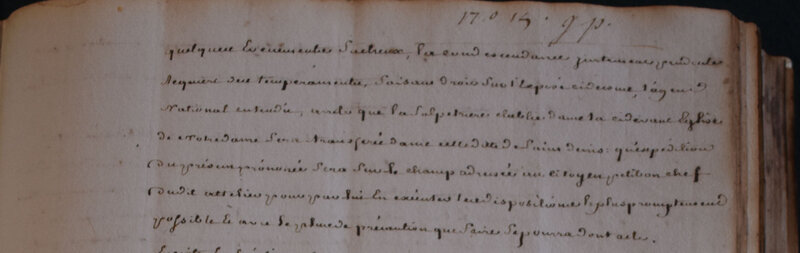 quelques Evenements facheux, la condescendance justement prudente
Requiere des temperaments, faisant droit sur l'Exposé cidessus, l'agent
National entendu, arrete que la Salpetriere etablie dans la cidevant Eglise
de Notredame Sera transferée dans celle dite de Saint denis: qu'expedition
du présent prononcé Sera Sur le champ adressée au citoyen petition chef
dudit attelier pour par lui En exécuter les dispositions le plus promptement
possible Et avec le plus de précaution que faire Se pourra dont acte.